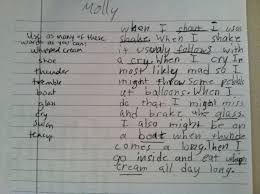 Molly
Use as many of these
words as you can:
whipped cream
shoe
thunder
tremble
boat
glass
cry
shaken
teacup
When I shout I use
shake. When I shake
it usualy follows with
a cry. When I cry Im
most likley mad so I
might throw some pebbls
at balloons. When I
do that I might miss
and brake the glass.
I also might be on
a boat when thunder
comes a long. then I
go inside and eat whip
cream all day long.